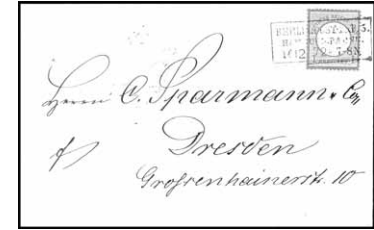 BERLIN
Herrn C. Sparmann & Co,
Dresden
Grossenhainerstr. 10